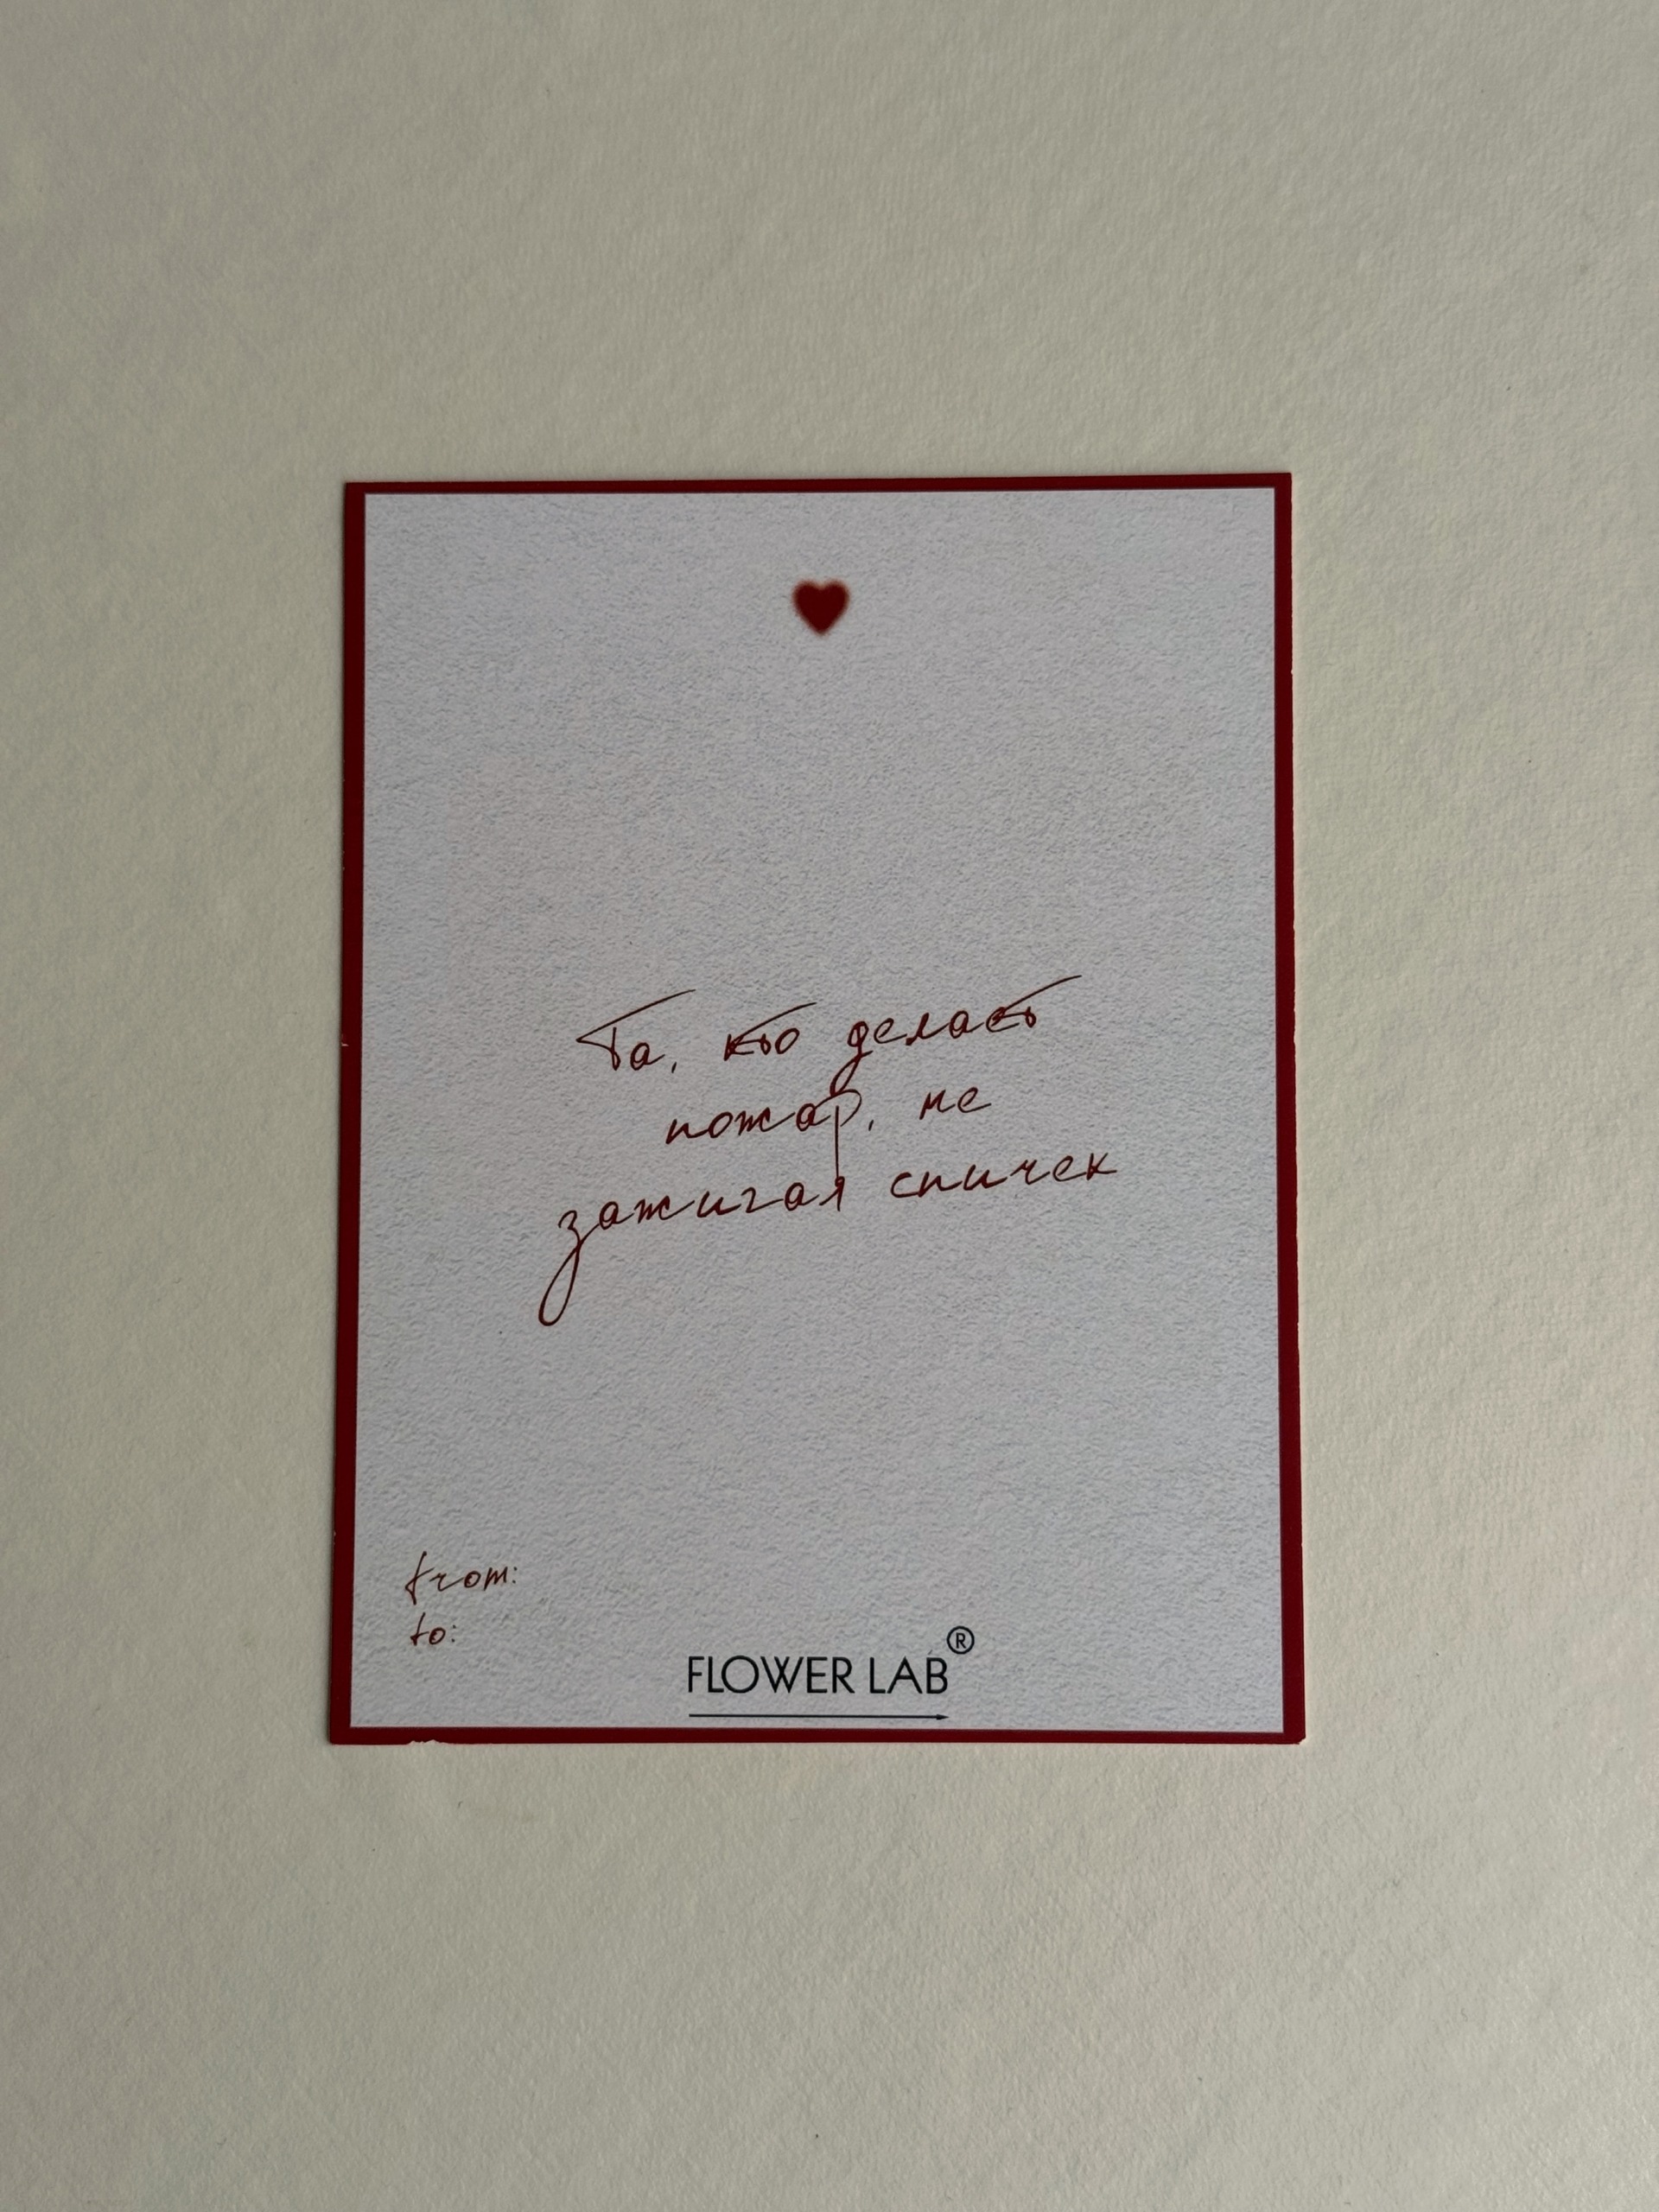 Та, кто делает
пожар, не
зажигая спичек
from:
to:
FLOWER LAB®